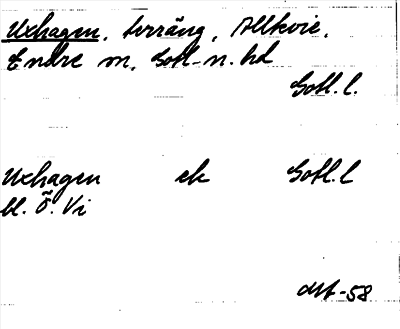 Uxhagen, torräng, Allkvie,
Endre sn, Gotl. n. hd
Gotl. l.
Uxhagen ek Gotl. l
bl. Ö. Vi
-58